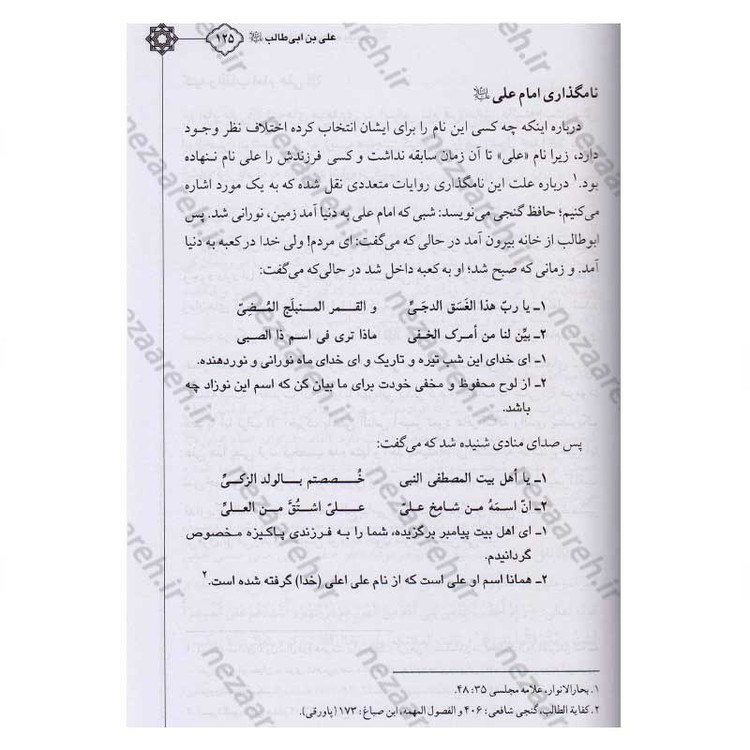 علی بن ابی‌طالب ۱۲۵
نامگذاری امام علی
درباره اینکه چه کسی این نام را برای ایشان انتخاب کرده اختلاف نظر وجود
دارد، زیرا نام «علی» تا آن زمان سابقه نداشت و کسی فرزندش را علی نام ننهاده
بود.۱ درباره علت این نامگذاری روایات متعددی نقل شده که به یک مورد اشاره
می‌کنیم؛ حافظ گنجی می‌نویسد: شبی که امام علی به دنیا آمد زمین، نورانی شد. پس
ابوطالب از خانه بیرون آمد در حالی که می‌گفت: ای مردم! ولی خدا در کعبه به دنیا
آمد. و زمانی که صبح شد؛ او به کعبه داخل شد در حالی‌که می‌گفت:
۱ـ یا ربّ هذا الغَسَق الدجَیّ و القمر المنبلَج المُضِیّ
۲ـ بیّن لنا من أمرک الخفی ماذا تری فی اسم ذا الصبی
۱ـ ای خدای این شب تیره و تاریک و ای خدای ماه نورانی و نوردهنده.
۲ـ از لوح محفوظ و مخفی خودت برای ما بیان کن که اسم این نوزاد چه
باشد.
پس صدای منادی شنیده شد که می‌گفت:
۱ـ یا أهل بیت المصطفی النبی خُصصتم بالولد الزکیّ
۲ـ انّ اسمَهُ من شامِخ علیّ علیّ اشتُقَّ من العلیّ
۱ـ ای اهل بیت پیامبر برگزیده، شما را به فرزندی پاکیزه مخصوص
گردانیدم.
۲ـ همانا اسم او علی است که از نام علی اعلی (خدا) گرفته شده است.۲
۱. بحارالانوار، علامه مجلسی ۳۵: ۴۸.
۲. کفایة الطالب، گنجی شافعی: ۴۰۶ و الفصول المهمه، ابن صباغ: ۱۷۳ (پاورقی).
nezaareh.ir